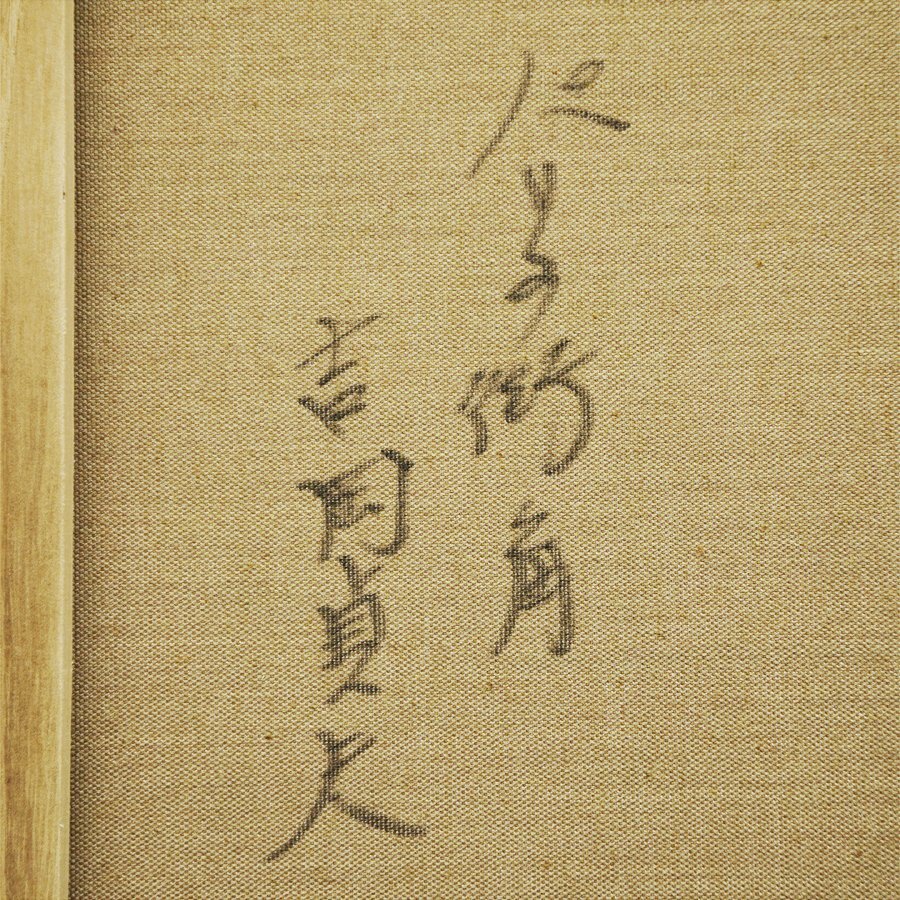 パリの街角
吉岡貞夫